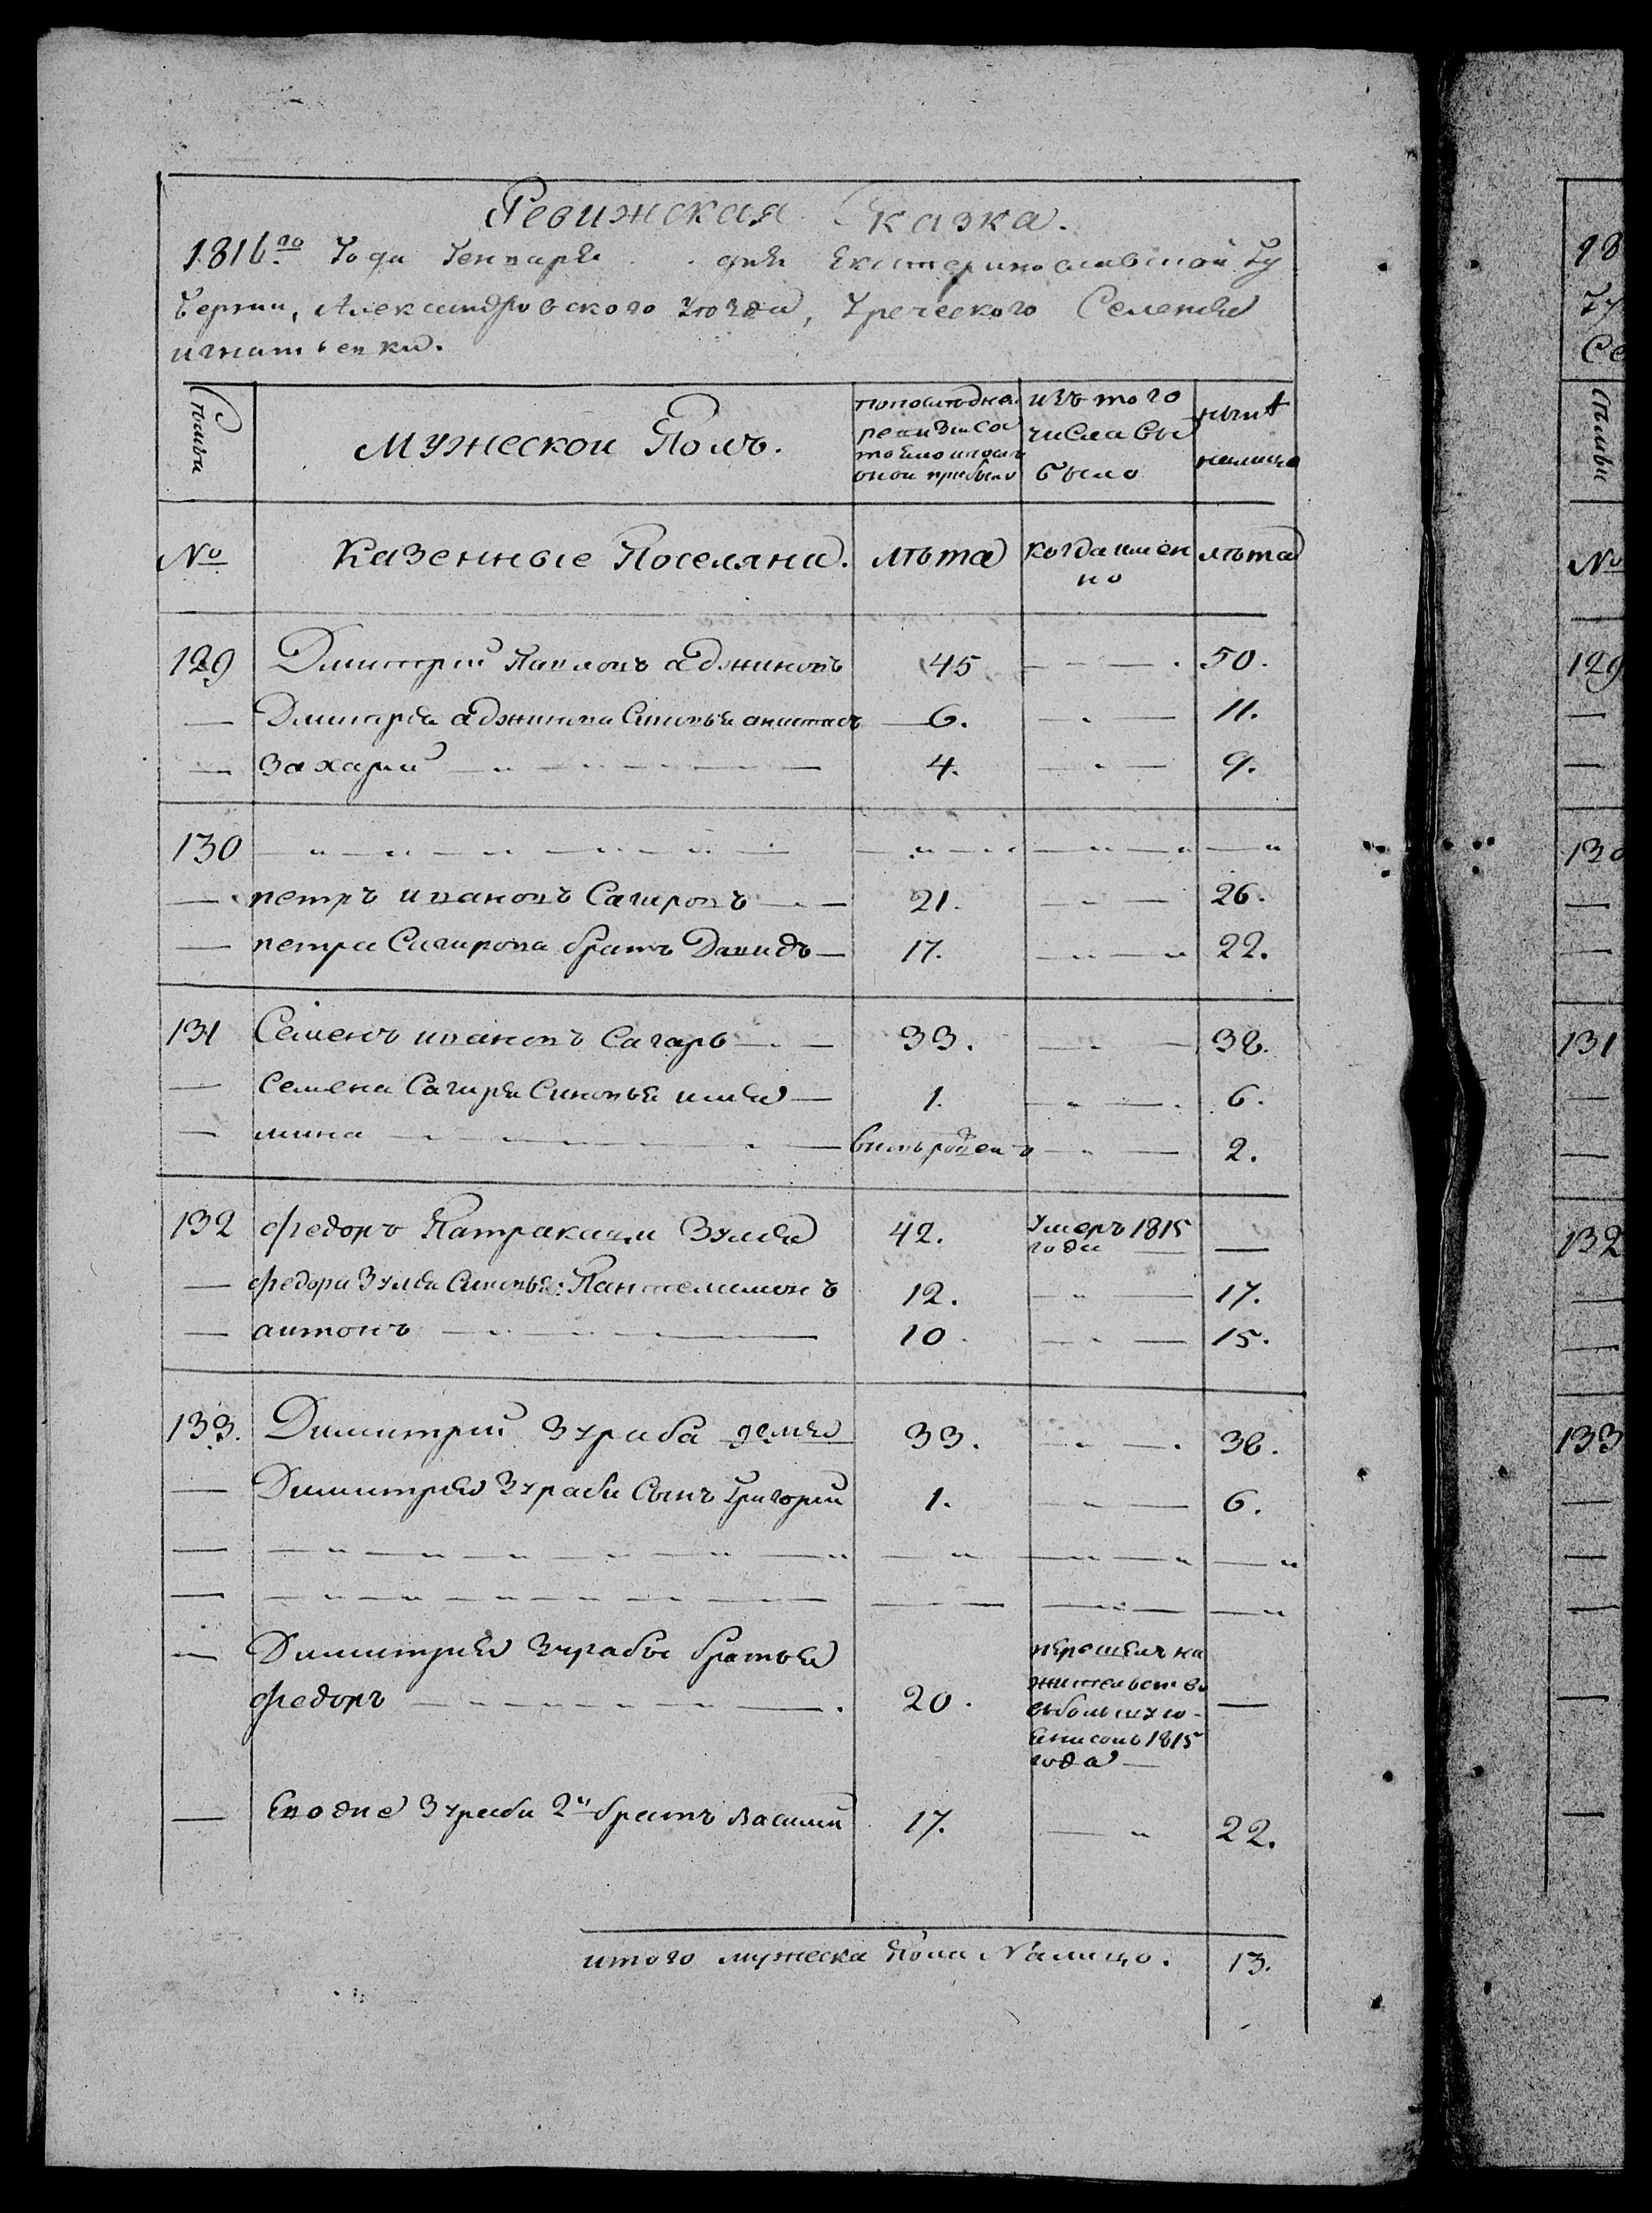 Ревижская Сказка.
1816го Года Генваря дня Екатеринославской Гу
бернии, Александровского уюзда, Греческого Селения
игнатьевки.
Семьи
Мужеской Полъ.
по последней
ревизии со
стояло и после
оной прибыло
изъ того
числа вы
было
ныне
налицо
№
Казенные Поселяна.
лѣта
когда имен
но
лѣта
129 Дмитрий Павловъ аджиновъ 45 — 50.
— Дмитрия аджинова Синовья анастасъ — 6. — 11.
— Захарий — 4. — 9.
130 — „ — „ — „ — „
— петръ ивановъ Сагировъ — 21. — 26.
— петра Сагирова братъ Давидъ — 17. — 22.
131 Семенъ ивановъ Сагарь — 33. — 38.
— Семена Сагиря Синовья илья — 1. — 6.
— мина — вновьрожденъ — 2.
132 федоръ Патракаци Зулья 42. Умеръ 1815
года — —
— федора Зулья Синовья: Пантелимонъ 12. — 17.
— антонъ — 10. — 15.
133. Димитрий Зураба 33. — 38.
— Димитрия Зураби Сынъ Григорий 1. — 6.
— — „ — „ — „ — „
— — „ — „ — „ — „
— Димитрия Зурабы братья
федоръ — 20. —
перошелъ на
жительство
вбольшую
енисоль 1815
года —
— Ево дне Зураби 2й братъ василий 17. — 22.
итого мужеска пола Налицо. 13.
18
Гу
Се
Семьи
№
129
—
—
130
—
—
131
—
—
132
—
—
133
—
—
—
—
—